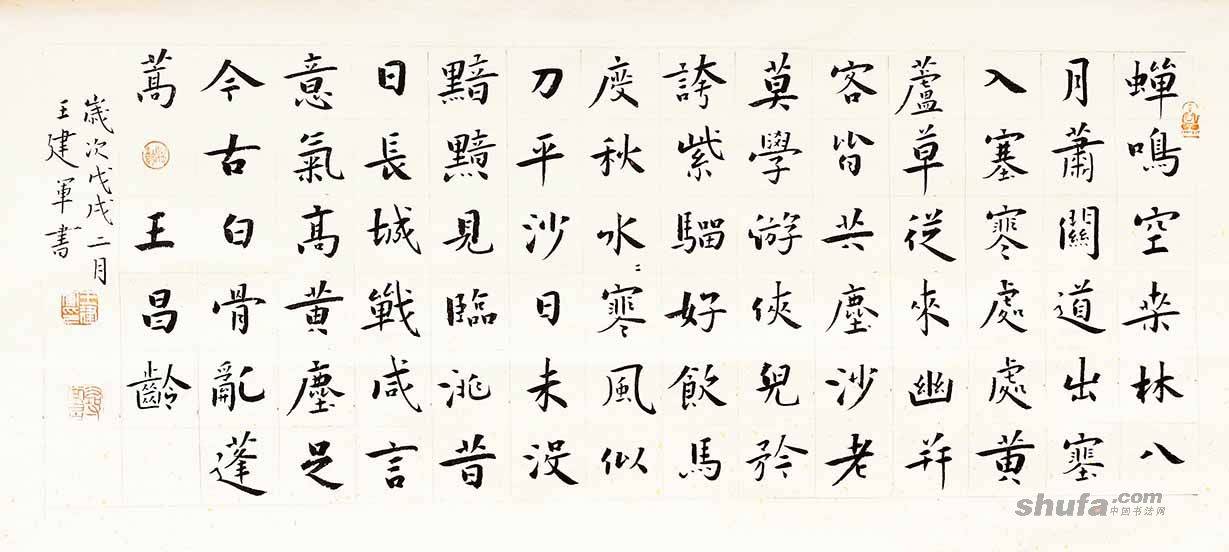 蟬鳴空桒林八
月蕭關道出塞
入塞寒處處黄
蘆草從來幽并
客皆共塵沙老
莫學游俠兒矜
誇紫騮好飲馬
度秋水〻寒風似
刀平沙日未没
黯黯見臨洮昔
日長城戰咸言
意氣高黄塵足
今古白骨亂蓬
蒿 王昌齡
歲次戊戌二月
王建軍書
shufa.com
中国书法网